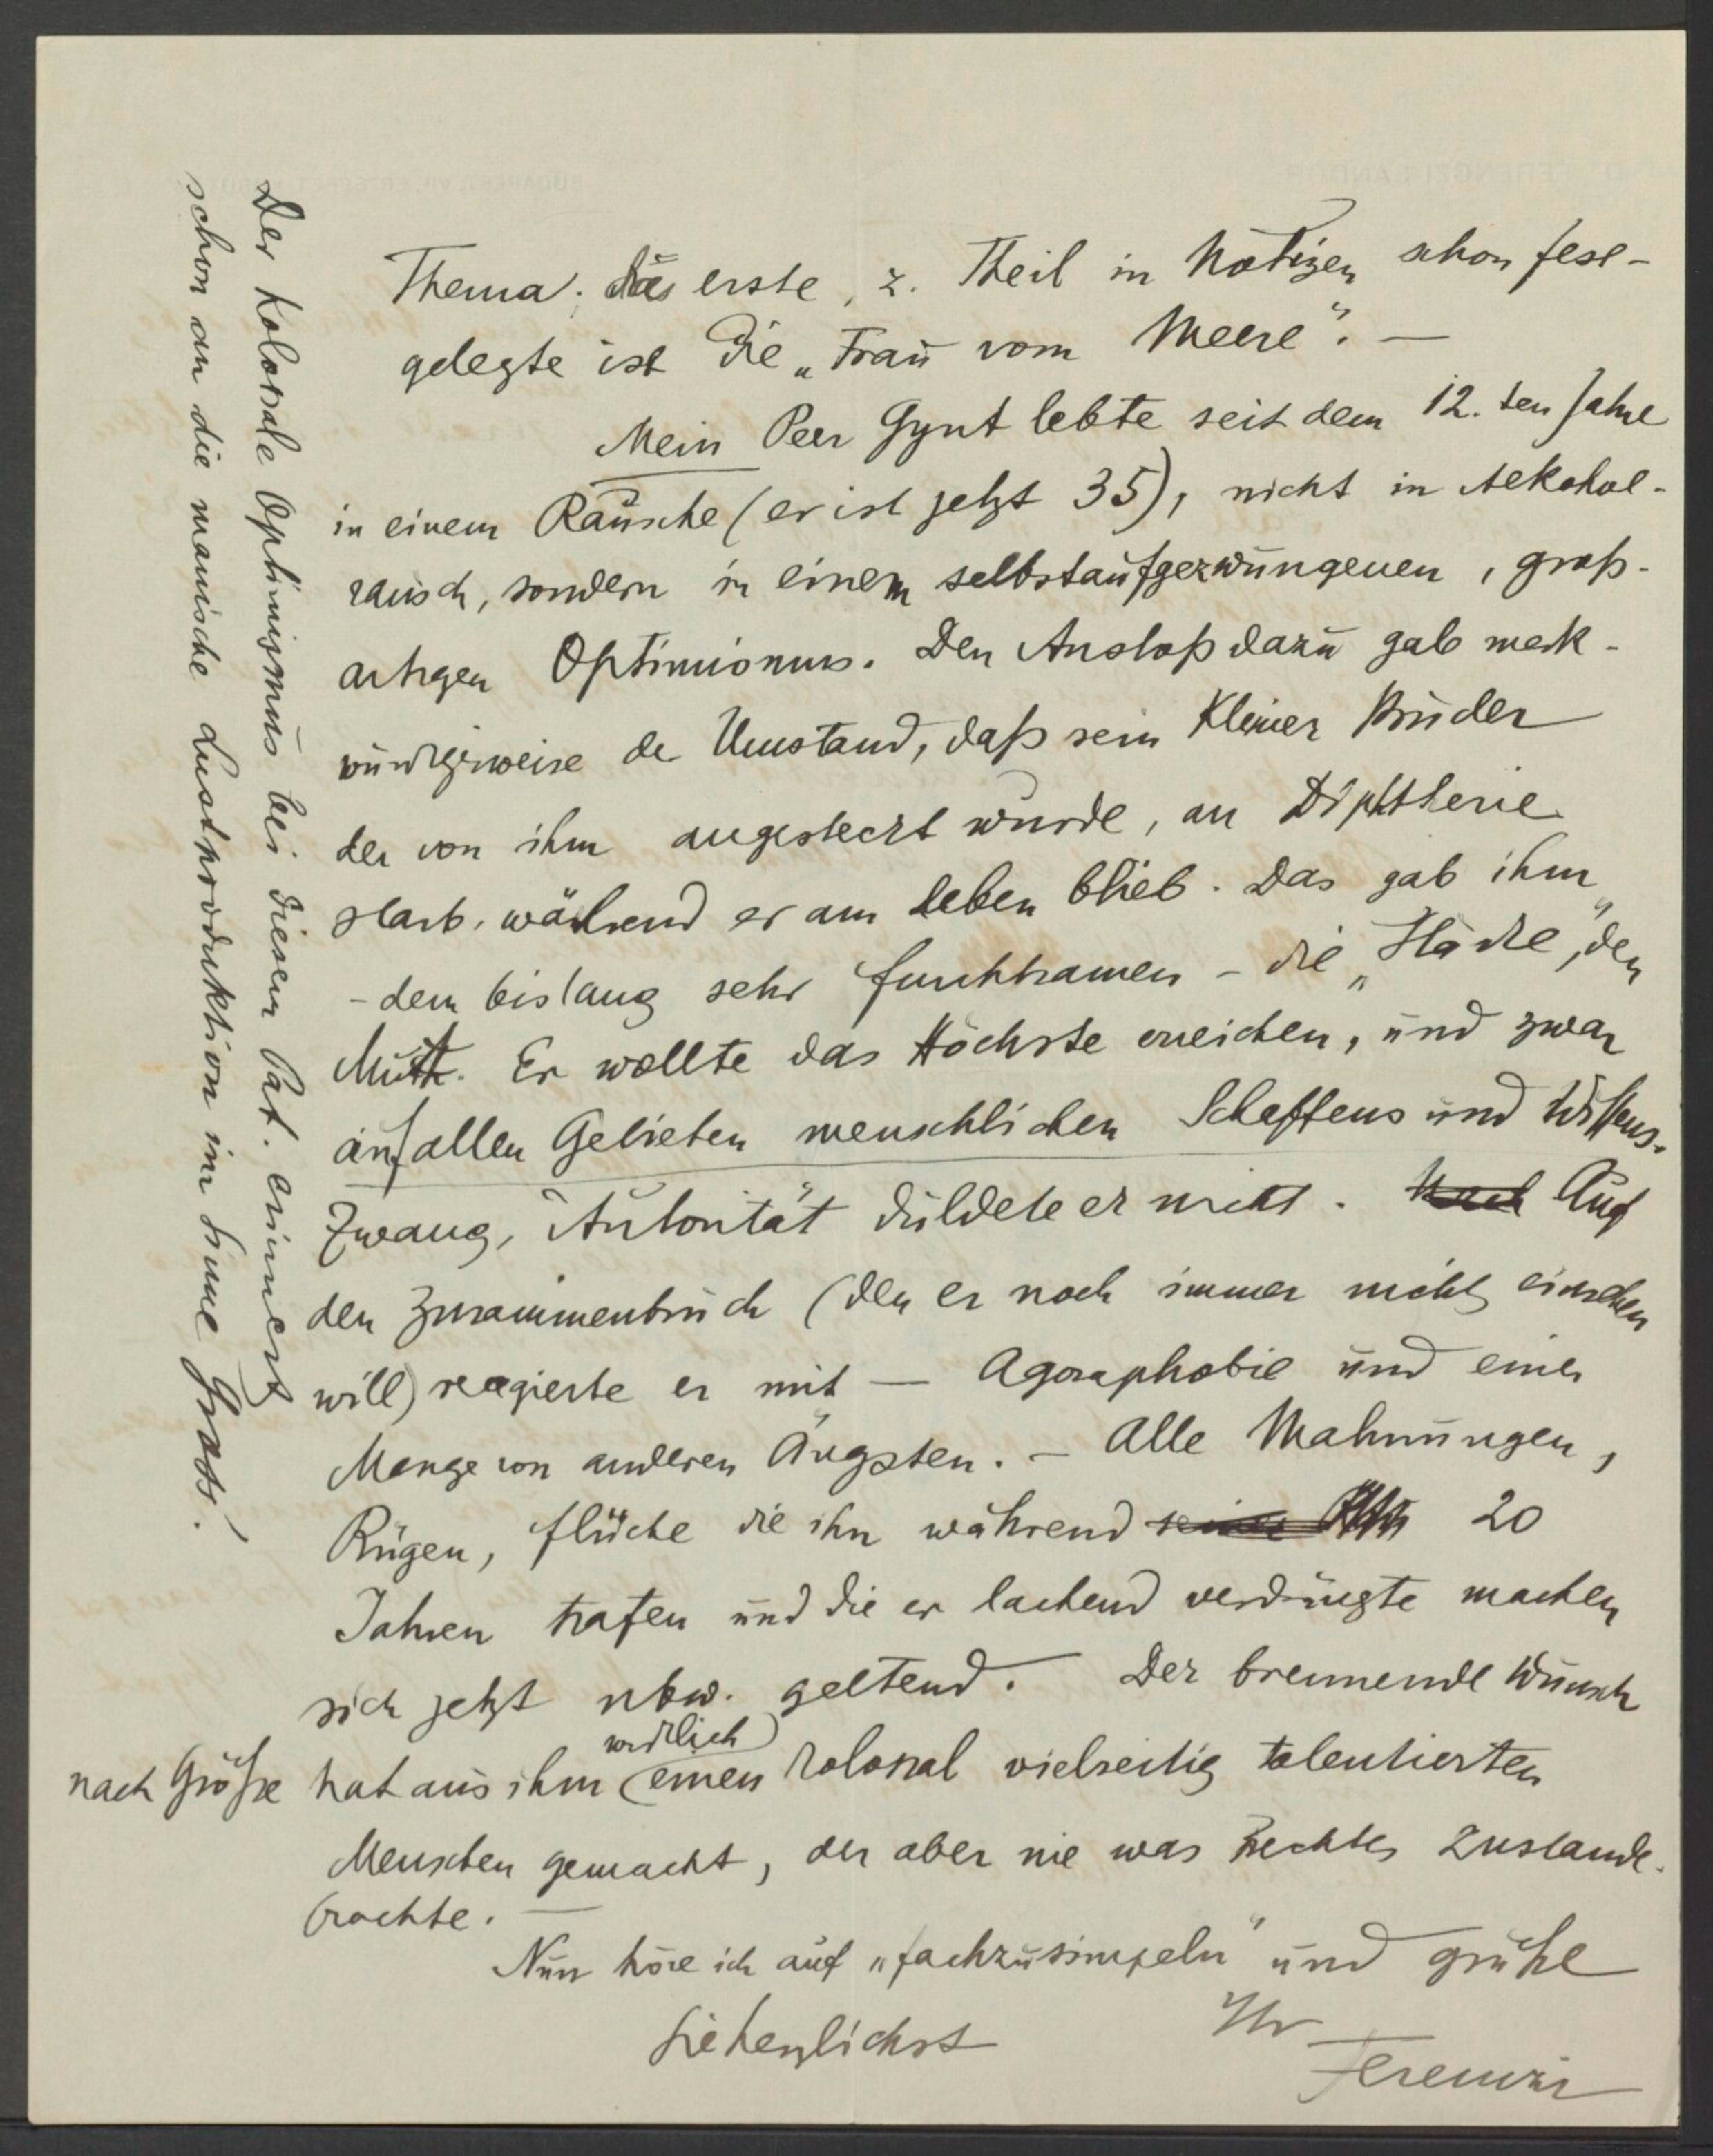 Thema; das erste, z. Theil in Notizen schon fest-
gelegte ist die „Frau vom Meere“. —
Mein Peer Gynt lebte seit dem 12. ten Jahre
in einem Rausche (er ist jetzt 35), nicht in Alkohol-
rausch, sondern in einem selbstaufgezwungenen, groß-
artigen Optimismus. Den Anstoß dazu gab merk-
würdigerweise der Umstand, daß sein kleiner Bruder
der von ihm angesteckt wurde, an Diphtherie
starb, während er am Leben blieb. Das gab ihm
- dem bislang sehr furchtsamen - die „Stärke“, den
Muth. Er wollte das Höchste erreichen, und zwar
auf allen Gebieten menschlichen Schaffens und Wissens.
Zwang, Autorität duldete er nicht. Nach Auf
den Zusammenbruch (den er noch immer nicht einsehen
will) reagierte er mit — Agoraphobie und einer
Menge von anderen Ängsten. — Alle Mahnungen,
Rügen, Flüche die ihn während seiner 20
Jahren trafen und die er lachend verdrängte machen
sich jetzt ubw. geltend. Der brennende Wunsch
nach Größe hat aus ihm wirklich einen kolossal vielseitig talentierten
Menschen gemacht, der aber nie was Rechtes zustande-
brachte. —
Nun höre ich auf „fachzusimpeln“ und grüße
Sie herzlichst
Ihr
Ferenczi
Der kolossale Optimismus bei diesem Pat. erinnert
schon an die manische Lustproduktion im Sinne Gross'.